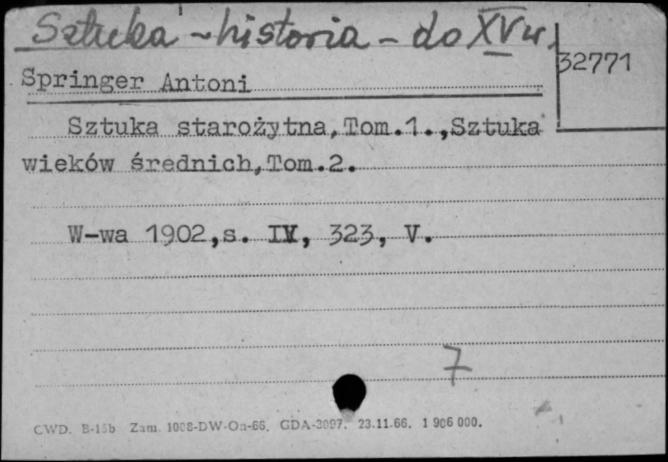 Sztuka - historia - do XV w.
32771
Springer Antoni
Sztuka starożytna, Tom.1., Sztuka
wieków średnich, Tom.2.
W-wa 1902, s. IV, 323, V.
7
CWD. B-15b Zam. 1008-DW-On-66. GDA-3097. 23.11.66. 1 906 000.